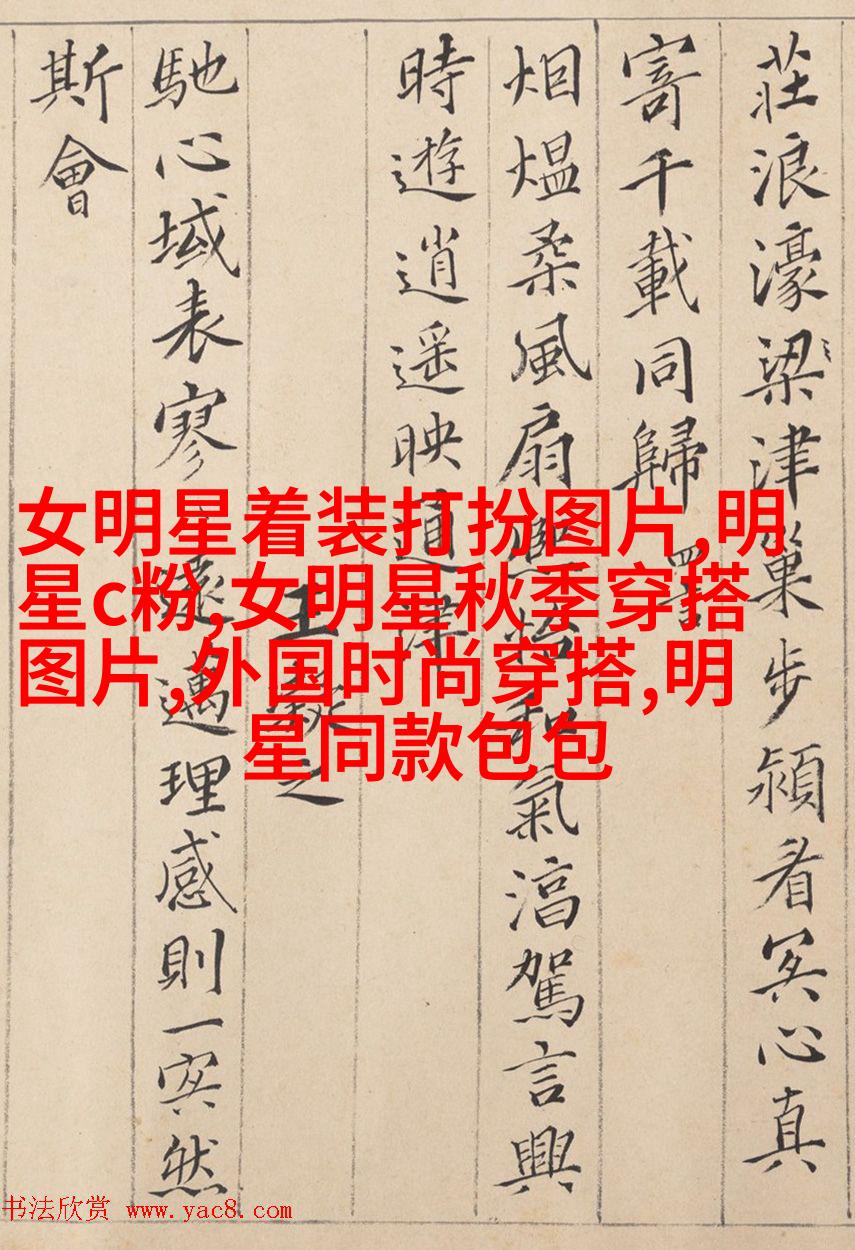 莊浪濠梁津巢步潁看冥心真
寄千載同歸
烟熅柔風扇和氣滛駕言興
時遊逍遥映通津
馳心域表寥遠邁理感則一冥然
斯會
女明星着装打扮图片,明
星c粉,女明星秋季穿搭
图片,外国时尚穿搭,明
星同款包包
书法欣赏 www.yac8.com